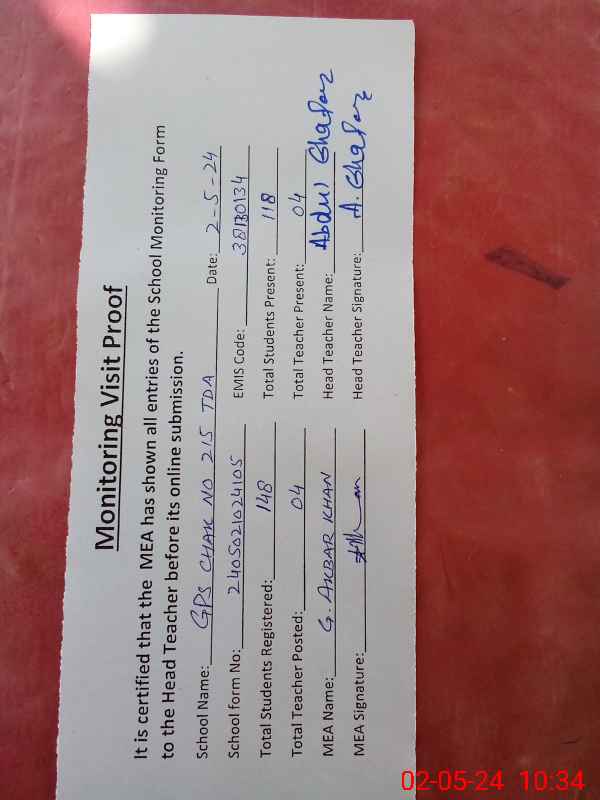 Monitoring Visit Proof
It is certified that the MEA has shown all entries of the School Monitoring Form
to the Head Teacher before its online submission.
School Name: GPS CHAK NO 215 TDA Date: 2-5-24
School form No: 2405021024105 EMIS Code: 38130134
Total Students Registered: 148 Total Students Present: 118
Total Teacher Posted: 04 Total Teacher Present: 04
MEA Name: G. AKBAR KHAN Head Teacher Name: Abdul Ghafoor
MEA Signature: Head Teacher Signature: A. Ghafoor
02-05-24 10:34